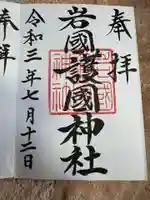 奉拝
岩國護國神社
令和三年七月十二日
奉拝